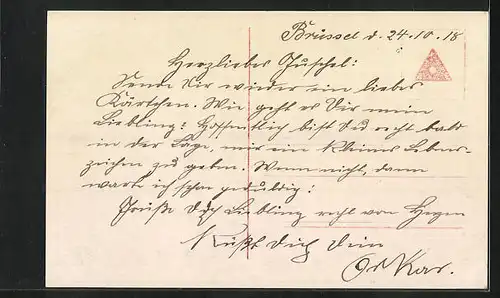 Brüssel d. 24.10.18
Herzliebes Puschel:
Sende Dir wieder ein liebes
Kärtchen. Wie geht es Dir mein
Liebling? Hoffentlich bist Du recht bald
in der Lage, mir ein kleines Lebens-
zeichen zu geben. Wenn nicht, dann
wart ich schon geduldig:
Grüße Dich Liebling recht von Herzen
Küßt Dich Dein
Oskar.